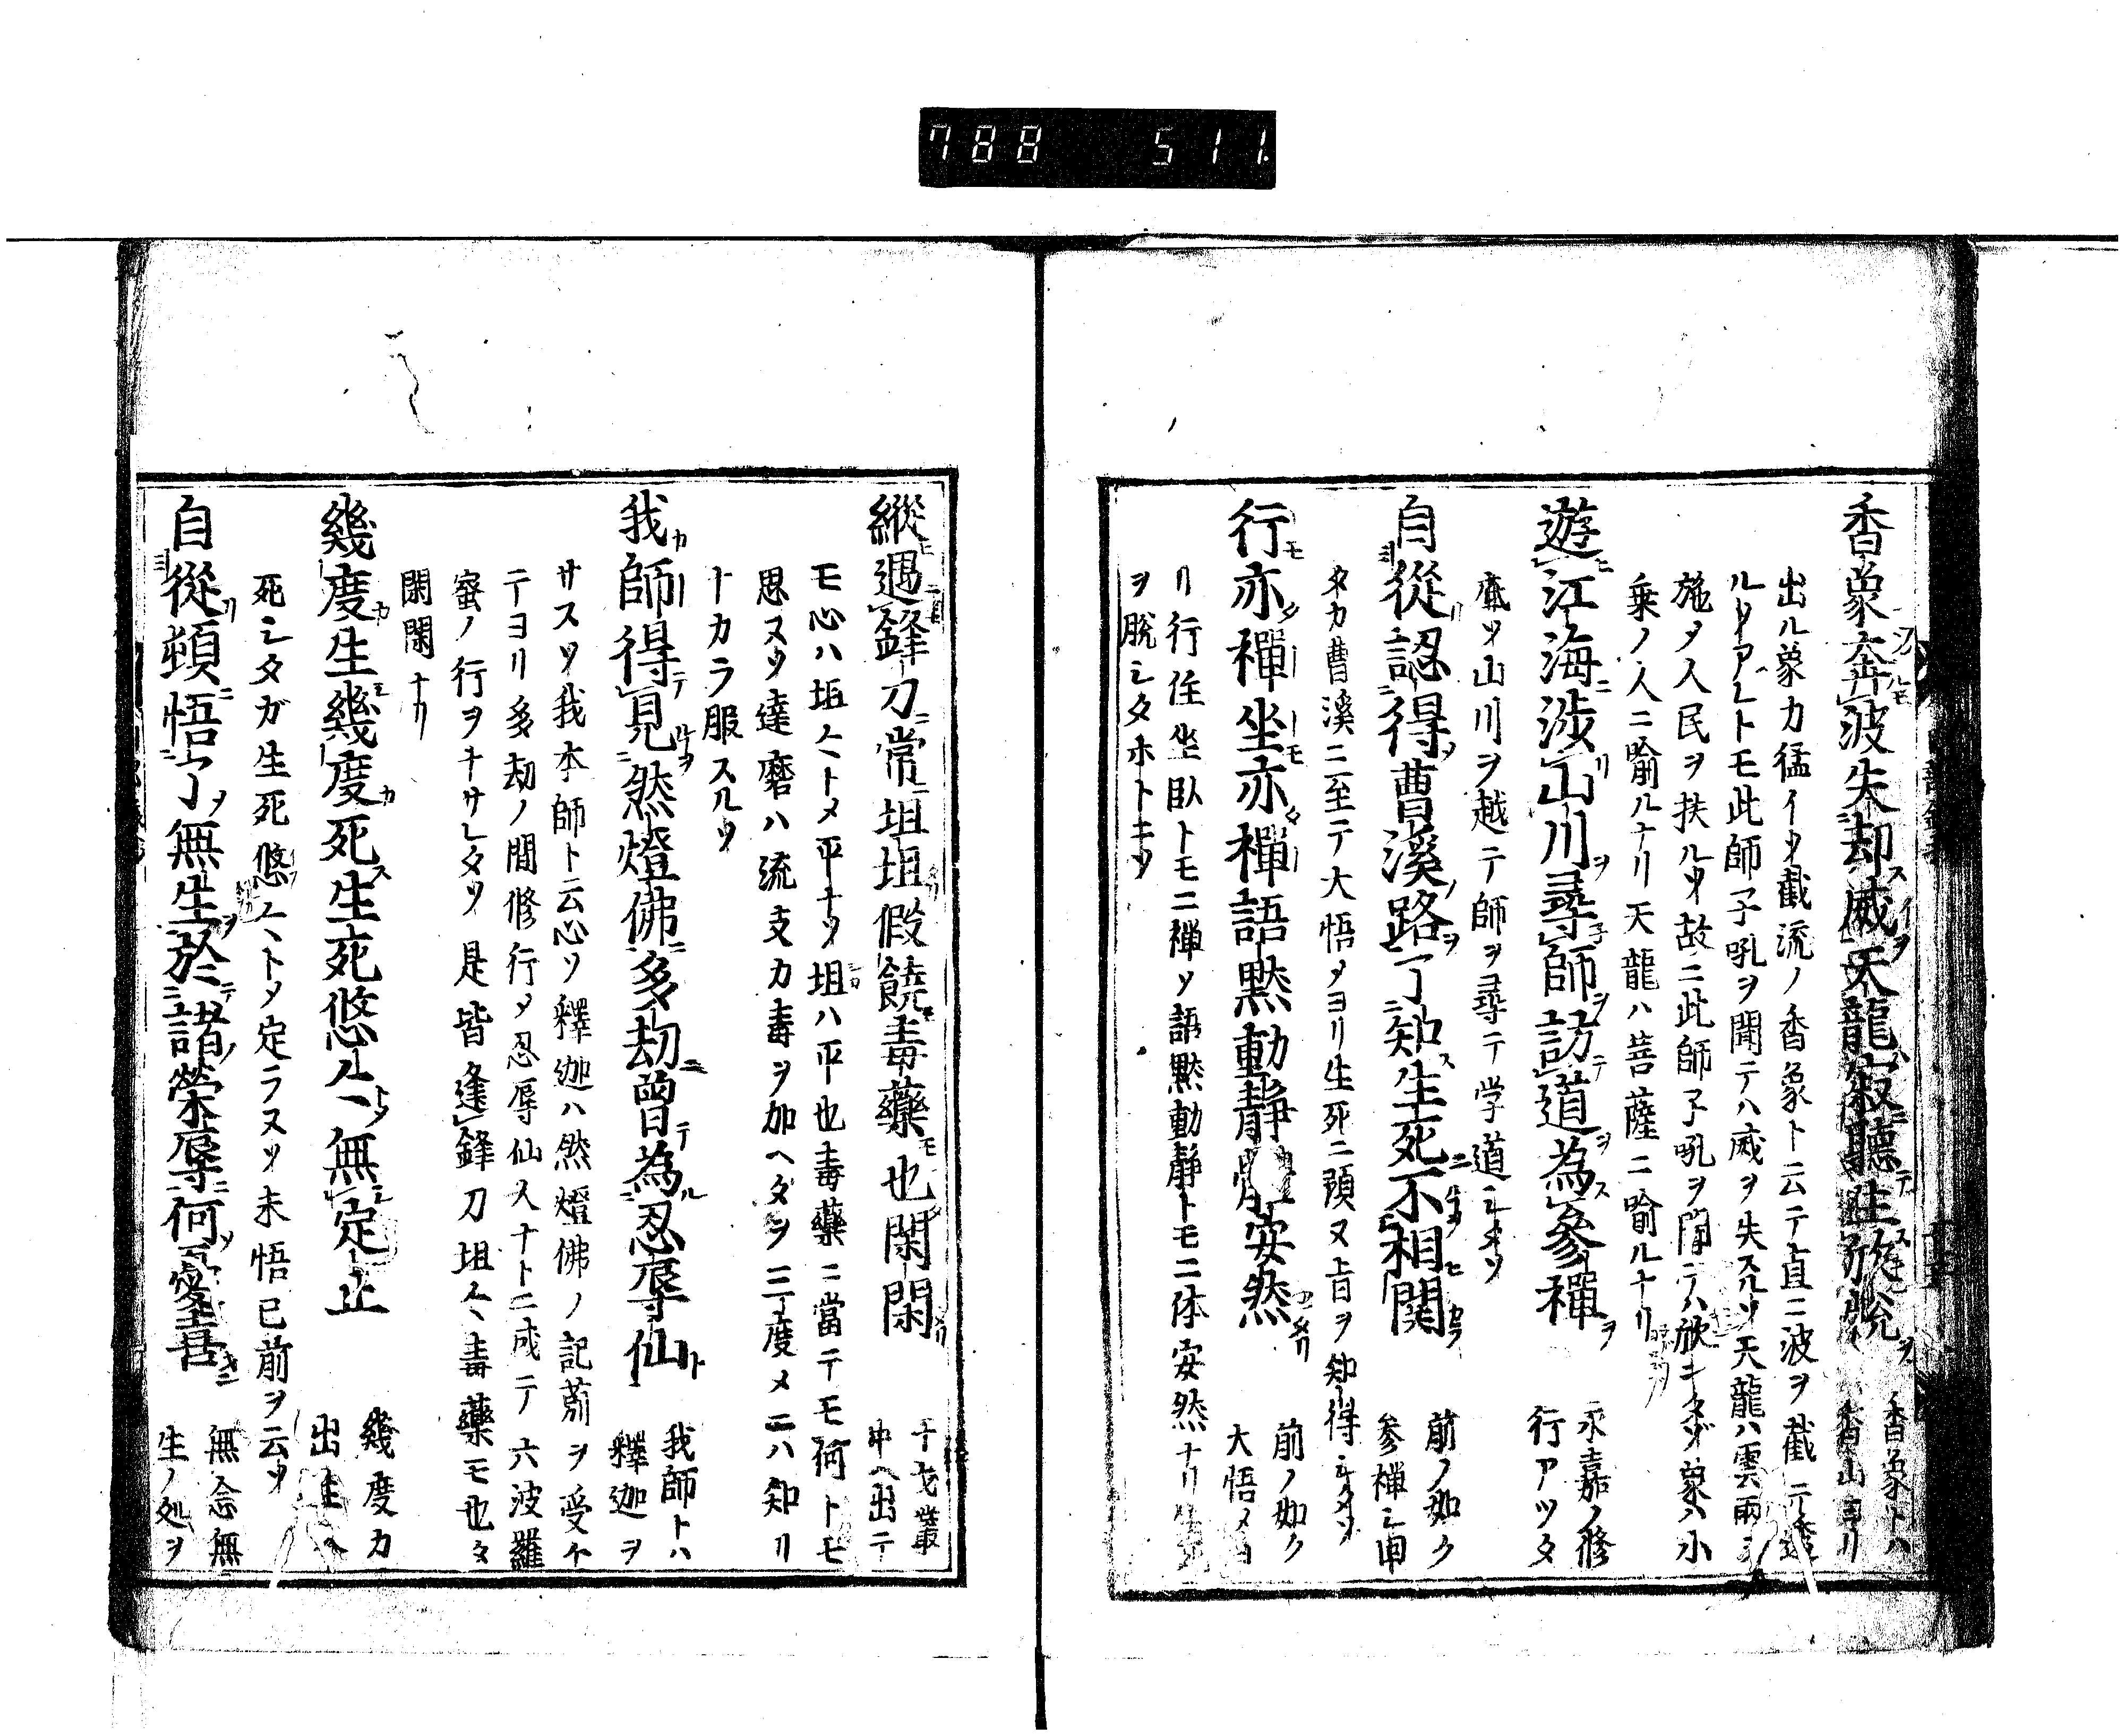 788 511
香象奔波失却威天龍寂聽生欣悅
香象トハ
香山ヨリ
出ル象カ猛イソ截流ノ香象ト云テ直ニ波ヲ截テ
ルソアレトモ此師子吼ヲ聞テハ威ヲ失スルソ天龍ハ雲雨ヲ
施メ人民ヲ扶ルソ故ニ此師子吼ヲ聞テハ欣ニタソ象ハ小
乗ノ人ニ喻ルナリ天龍ハ菩薩ニ喻ルナリ
遊江海涉山川尋師訪道為參禪
永嘉ノ修
行アツタ
處ソ山川ヲ越テ師ヲ尋テ学道シタソ
自從認得曹溪路了知生死不相關
前ノ如ク
参禅シ申
タカ曹溪ニ至テ大悟メヨリ生死ニ預ヌ旨ヲ知得シタソ
行亦禪坐亦禪語黙動靜體安然
前ノ如ク
大悟メヨ
リ行住坐臥トモニ禅ソ語黙動静トモニ体安然ナリ生死
ヲ脱シタホトニソ
縱遇鋒刀常坦坦假饒毒藥也閑閑
干戈叢
中ヘ出テ
モ心ハ坦〻トメ平ナソ坦ハ平也毒藥ニ當テモ何トモ
思ヌソ達磨ハ流支カ毒ヲ加ヘタヲ三度メニハ知リ
ナカラ服スルソ
我師得見然燈佛多劫曾為忍辱仙
我師トハ
釋迦ヲ
サスソ我本師ト云心ソ釋迦ハ然燈佛ノ記莂ヲ受ケ
テヨリ多劫ノ間修行メ忍辱仙人ナトニ成テ六波羅
蜜ノ行ヲナサレタソ是皆逢鋒刀坦〻毒藥モ也タ
閑閑ナリ
幾度生幾度死生死悠〻無定止
幾度カ
出生ヘ
死シタガ生死悠〻トメ定ラヌソ未悟已前ヲ云ソ
自從頓悟了無生於諸榮辱何憂喜
無念無
生ノ処ヲ